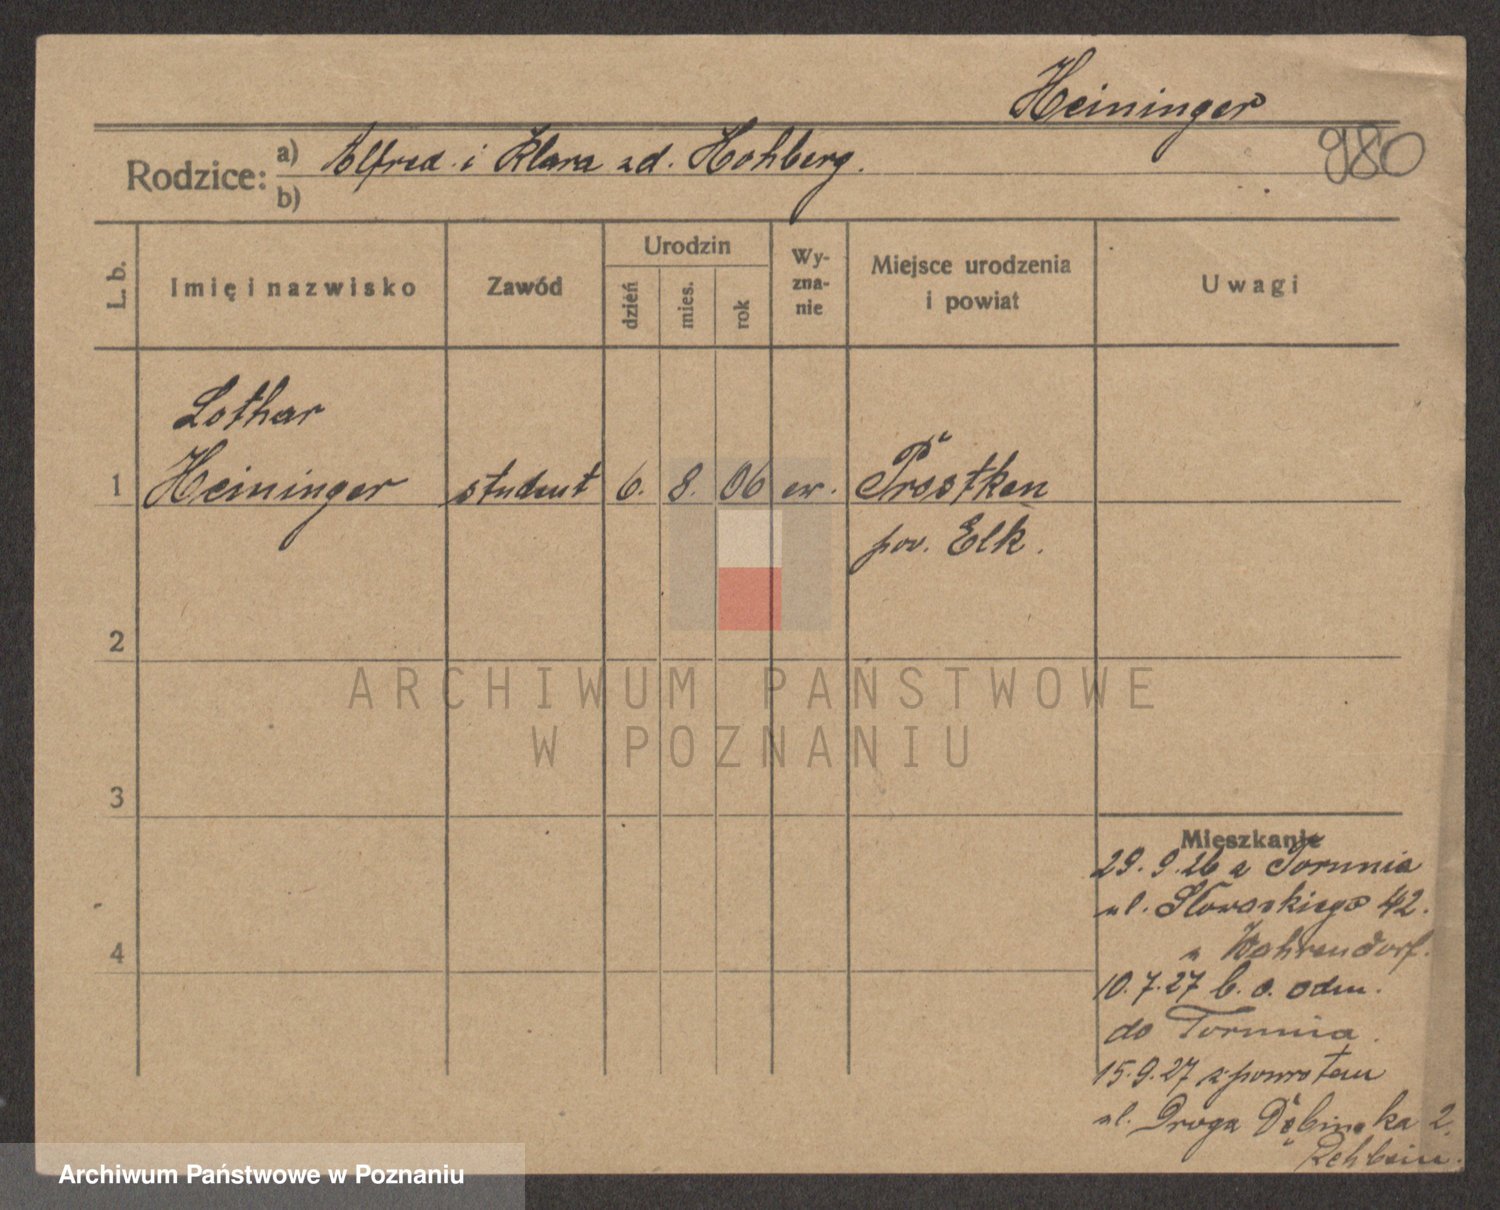 Heininger
980
Rodzice:
a) Alfred i Klara zd. Hohberg.
b)
L. b.
Imię i nazwisko
Zawód
Urodzin
dzień
mies.
rok
Wy-
zna-
nie
Miejsce urodzenia
i powiat
Uwagi
Lothar
1 Heininger student 6. 8. 06 ew. Prostken
pow. Ełk.
2
ARCHIWUM PAŃSTWOWE
W POZNANIU
3
Mieszkanie
29.9.26 z Torunia
ul. Słowackiego 42.
u Wahrendorf.
10.7.27 b. o. odm.
do Torunia.
15.9.27 z powrotem
4
ul. Droga Dębińska 2.
Rehbein.
Archiwum Państwowe w Poznaniu